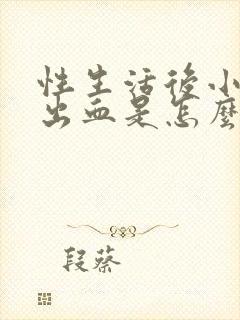 性生活後小
出血是怎麼
段蔡